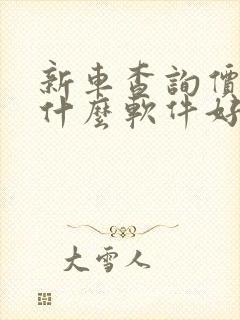 新車查詢價
什麼軟件好
大雪人